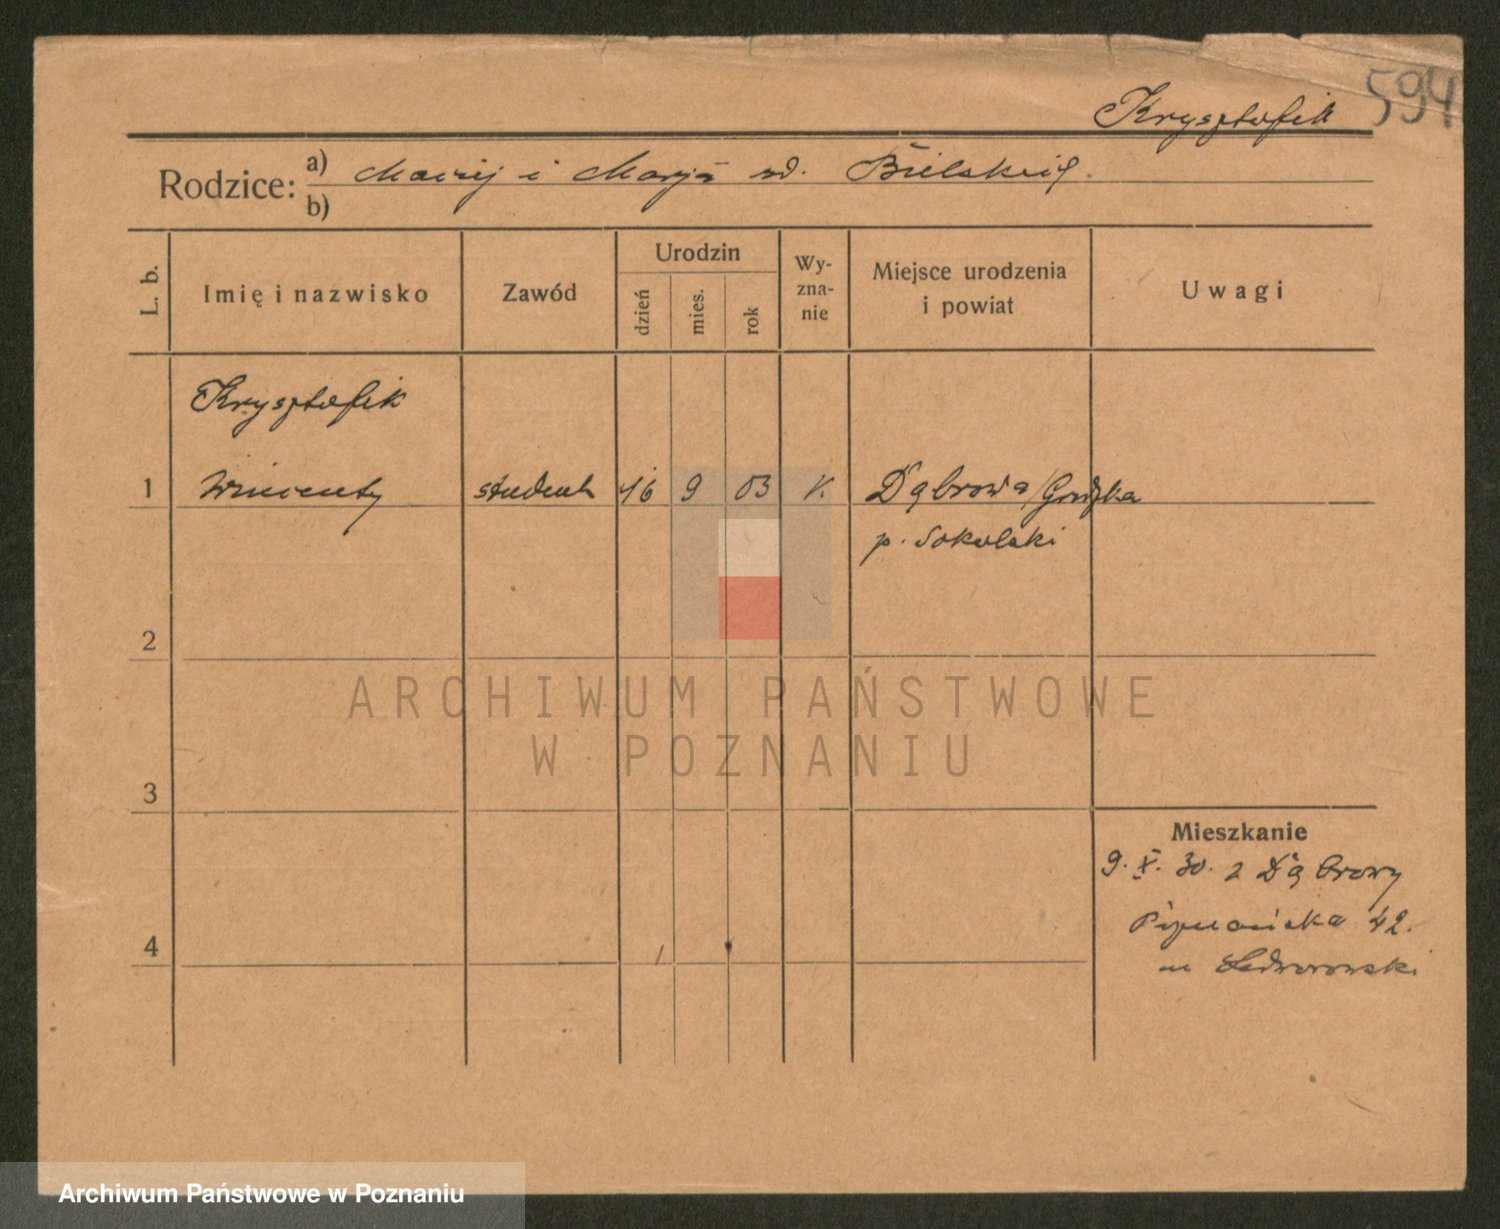 Krysztofik 594
Rodzice: a) Maciej i Marja zd. Bielskich.
b)
L. b.
Imię i nazwisko
Zawód
Urodzin
dzień
mies.
rok
Wy-
zna-
nie
Miejsce urodzenia
i powiat
Uwagi
Krysztofik
1 Wincenty student 16 9 03 k. Dąbrowa/Grodzka
p. Sokolski
2
3
4
Mieszkanie
9. X. 30. z Dąbrowy
42.
m
ARCHIWUM PAŃSTWOWE
W POZNANIU
Archiwum Państwowe w Poznaniu